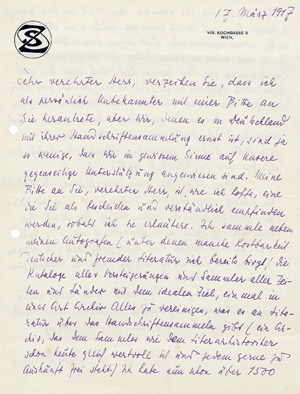 SZ
17. März 1917
VIII. KOCHGASSE 8
WIEN,
Sehr verehrter Herr, verzeihen Sie, dass ich
als persönlich Unbekannter mit einer Bitte an
Sie herantrete, aber wir, denen es in Deutschland
mit ihrer Handschriftensammlung ernst ist, sind ja
so wenige, dass wir in gewissem Sinne auf unsere
gegenseitige Unterstützung angewiesen sind. Meine
Bitte an Sie, verehrter Herr ist, wie ich hoffe, eine
die Sie als bescheiden und verständlich empfinden
werden, sobald ich sie erläutere. Ich sammle neben
meinen Autografen (unter denen manche Kostbarkeit
deutscher und fremder Literatur sich bereits birgt) die
Kataloge aller Versteigerungen und Sammler aller Zei-
ten und Länder mit dem idealen Ziel, einmal in
einer Art Archiv Alles zu vereinigen, was es an Lite-
ratur über das Handschriftensammeln gibt (ein Ar-
chiv, das dem Sammler wie dem Literarhistoriker
schon heute gleich wertvoll ist und jedem gerne zu
Auskunft frei steht) ich habe nun schon über 1500